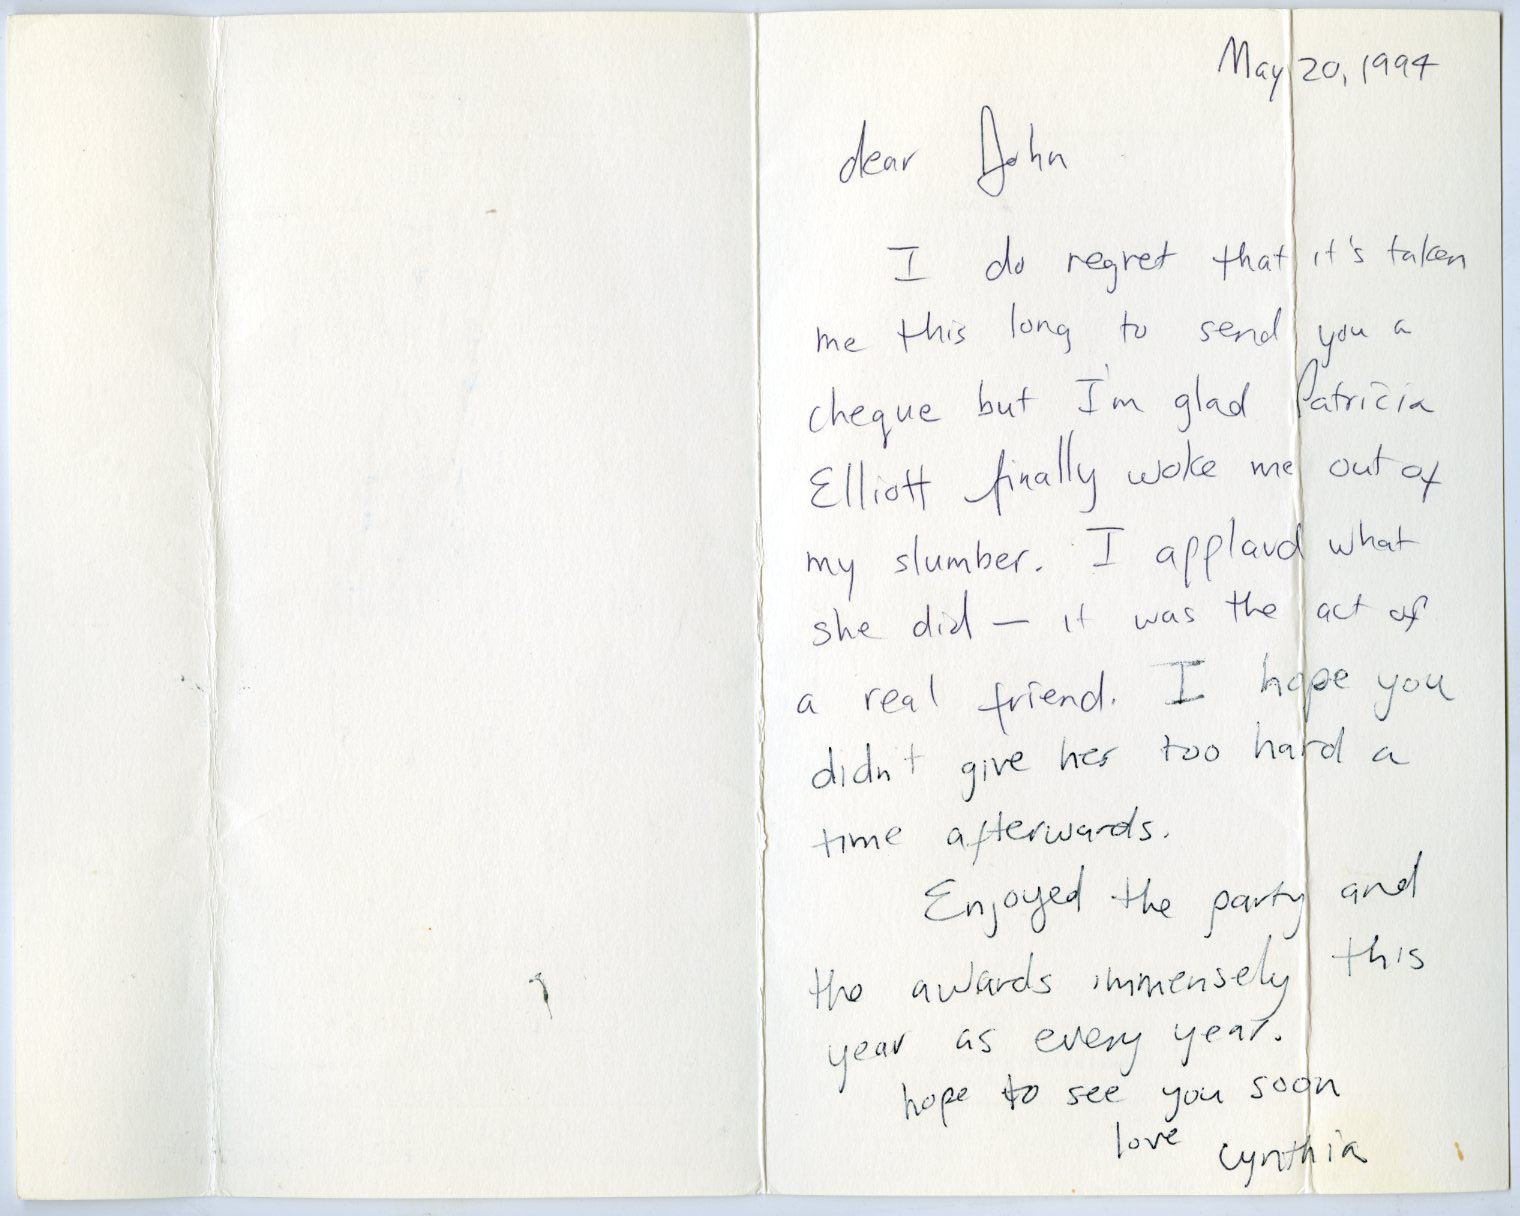 May 20, 1994
dear John
I do regret that it's taken
me this long to send you a
cheque but I'm glad Patricia
Elliott finally woke me out of
my slumber. I applaud what
she did — it was the act of
a real friend. I hope you
didn't give her too hard a
time afterwards.
Enjoyed the party and
the awards immensely this
year as every year.
hope to see you soon
love Cynthia